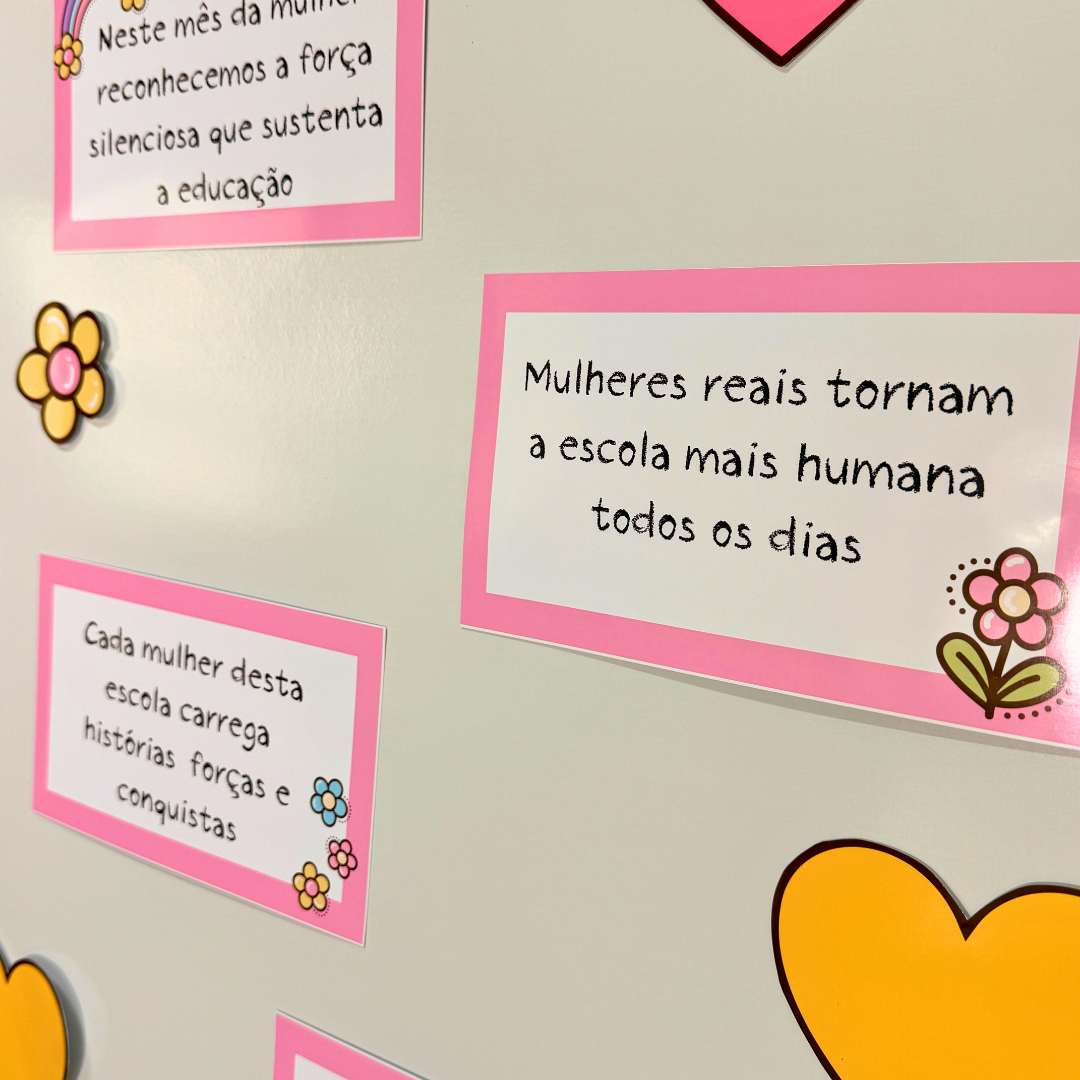 Neste mês da mulher
reconhecemos a força
silenciosa que sustenta
a educação
Mulheres reais tornam
a escola mais humana
todos os dias
Cada mulher desta
escola carrega
histórias forças e
conquistas